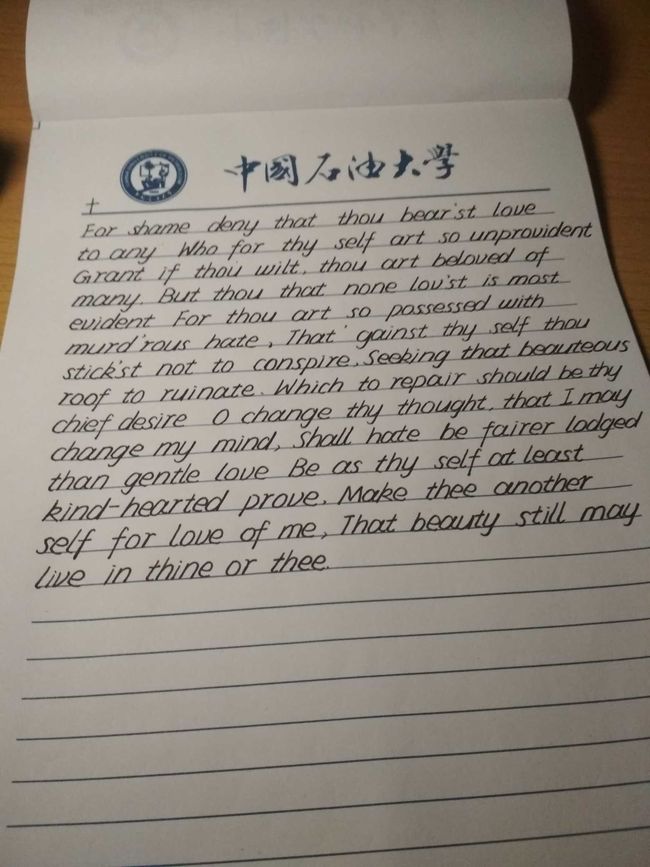 中國石油大學
For shame deny that thou bear'st love
to any Who for thy self art so unprovident
Grant if thou wilt, thou art beloved of
many. But thou that none lov'st is most
evident For thou art so possessed with
murd'rous hate, That 'gainst thy self thou
stick'st not to conspire, Seeking that beauteous
roof to ruinate. Which to repair should be thy
chief desire O change thy thought, that I may
change my mind, Shall hate be fairer lodged
than gentle love Be as thy self at least
kind-hearted prove, Make thee another
self for love of me, That beauty still may
live in thine or thee.